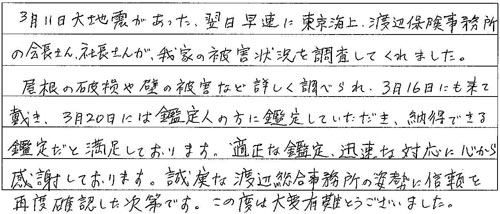 3月11日大地震があった、翌日早速に東京海上、渡辺保険事務所
の会長さん、社長さんが、我家の被害状況を調査してくれました。
屋根の破損や壁の被害など詳しく調べられ、3月16日にも来て
戴き、3月20日には鑑定人の方に鑑定していただき、納得できる
鑑定だと満足しております。適正な鑑定、迅速な対応に心から
感謝しております。誠実な渡辺総合事務所の姿勢に信頼を
再度確認した次第です。この度は大変有難とうございました。